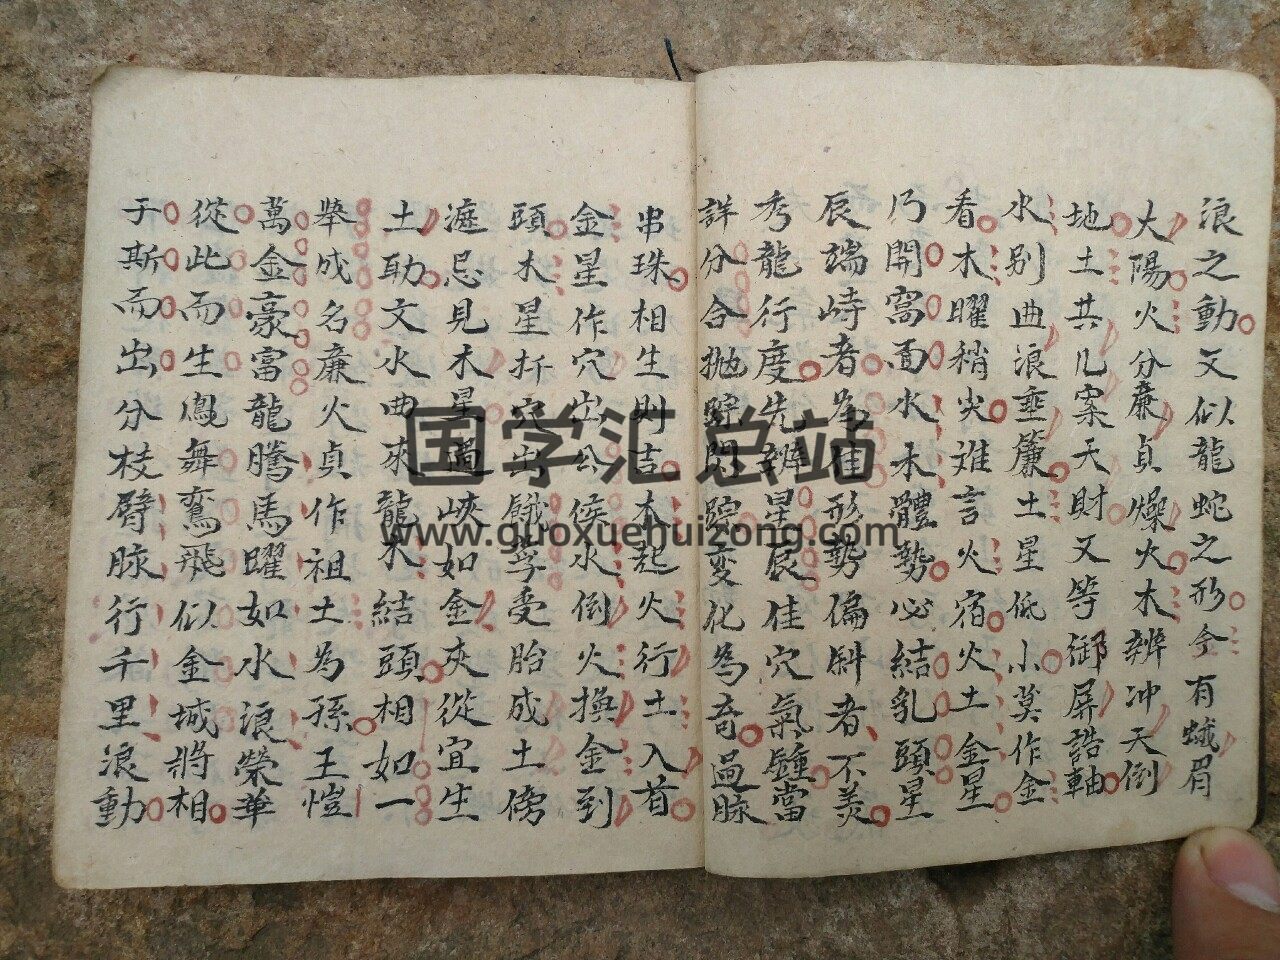 浪之動又似龍蛇之形今有蛾眉
太陽火分廉貞燥火木辨冲天倒
地土共儿案天財又等御屏誥軸
水别曲浪垂簾土星低小莫作金
看木曜稍尖难言火宿火土金星
乃開窩面水木體勢必結乳頭星
辰端峙者為佳形勢偏斜者不美
秀龍行度先辨星辰佳穴氣鍾當
詳分合抛踪閃踪变化為奇過脉
串珠相生則吉木起火行土入首
金星作穴出公侯水倒火換金到
頭木星扦穴出餓莩受胎成土傍
渡忌見木星過峽如金夾從宜生
土助文水曲來龍水結頭相如一
舉成名廉火貞作祖土為孫王愷
萬金豪富龍騰馬曜如水浪榮華
從此而生鳳舞鸞飛似金城將相
于斯而出分枝臂脉行千里浪動
国学汇总站
www.guoxuehuizong.com